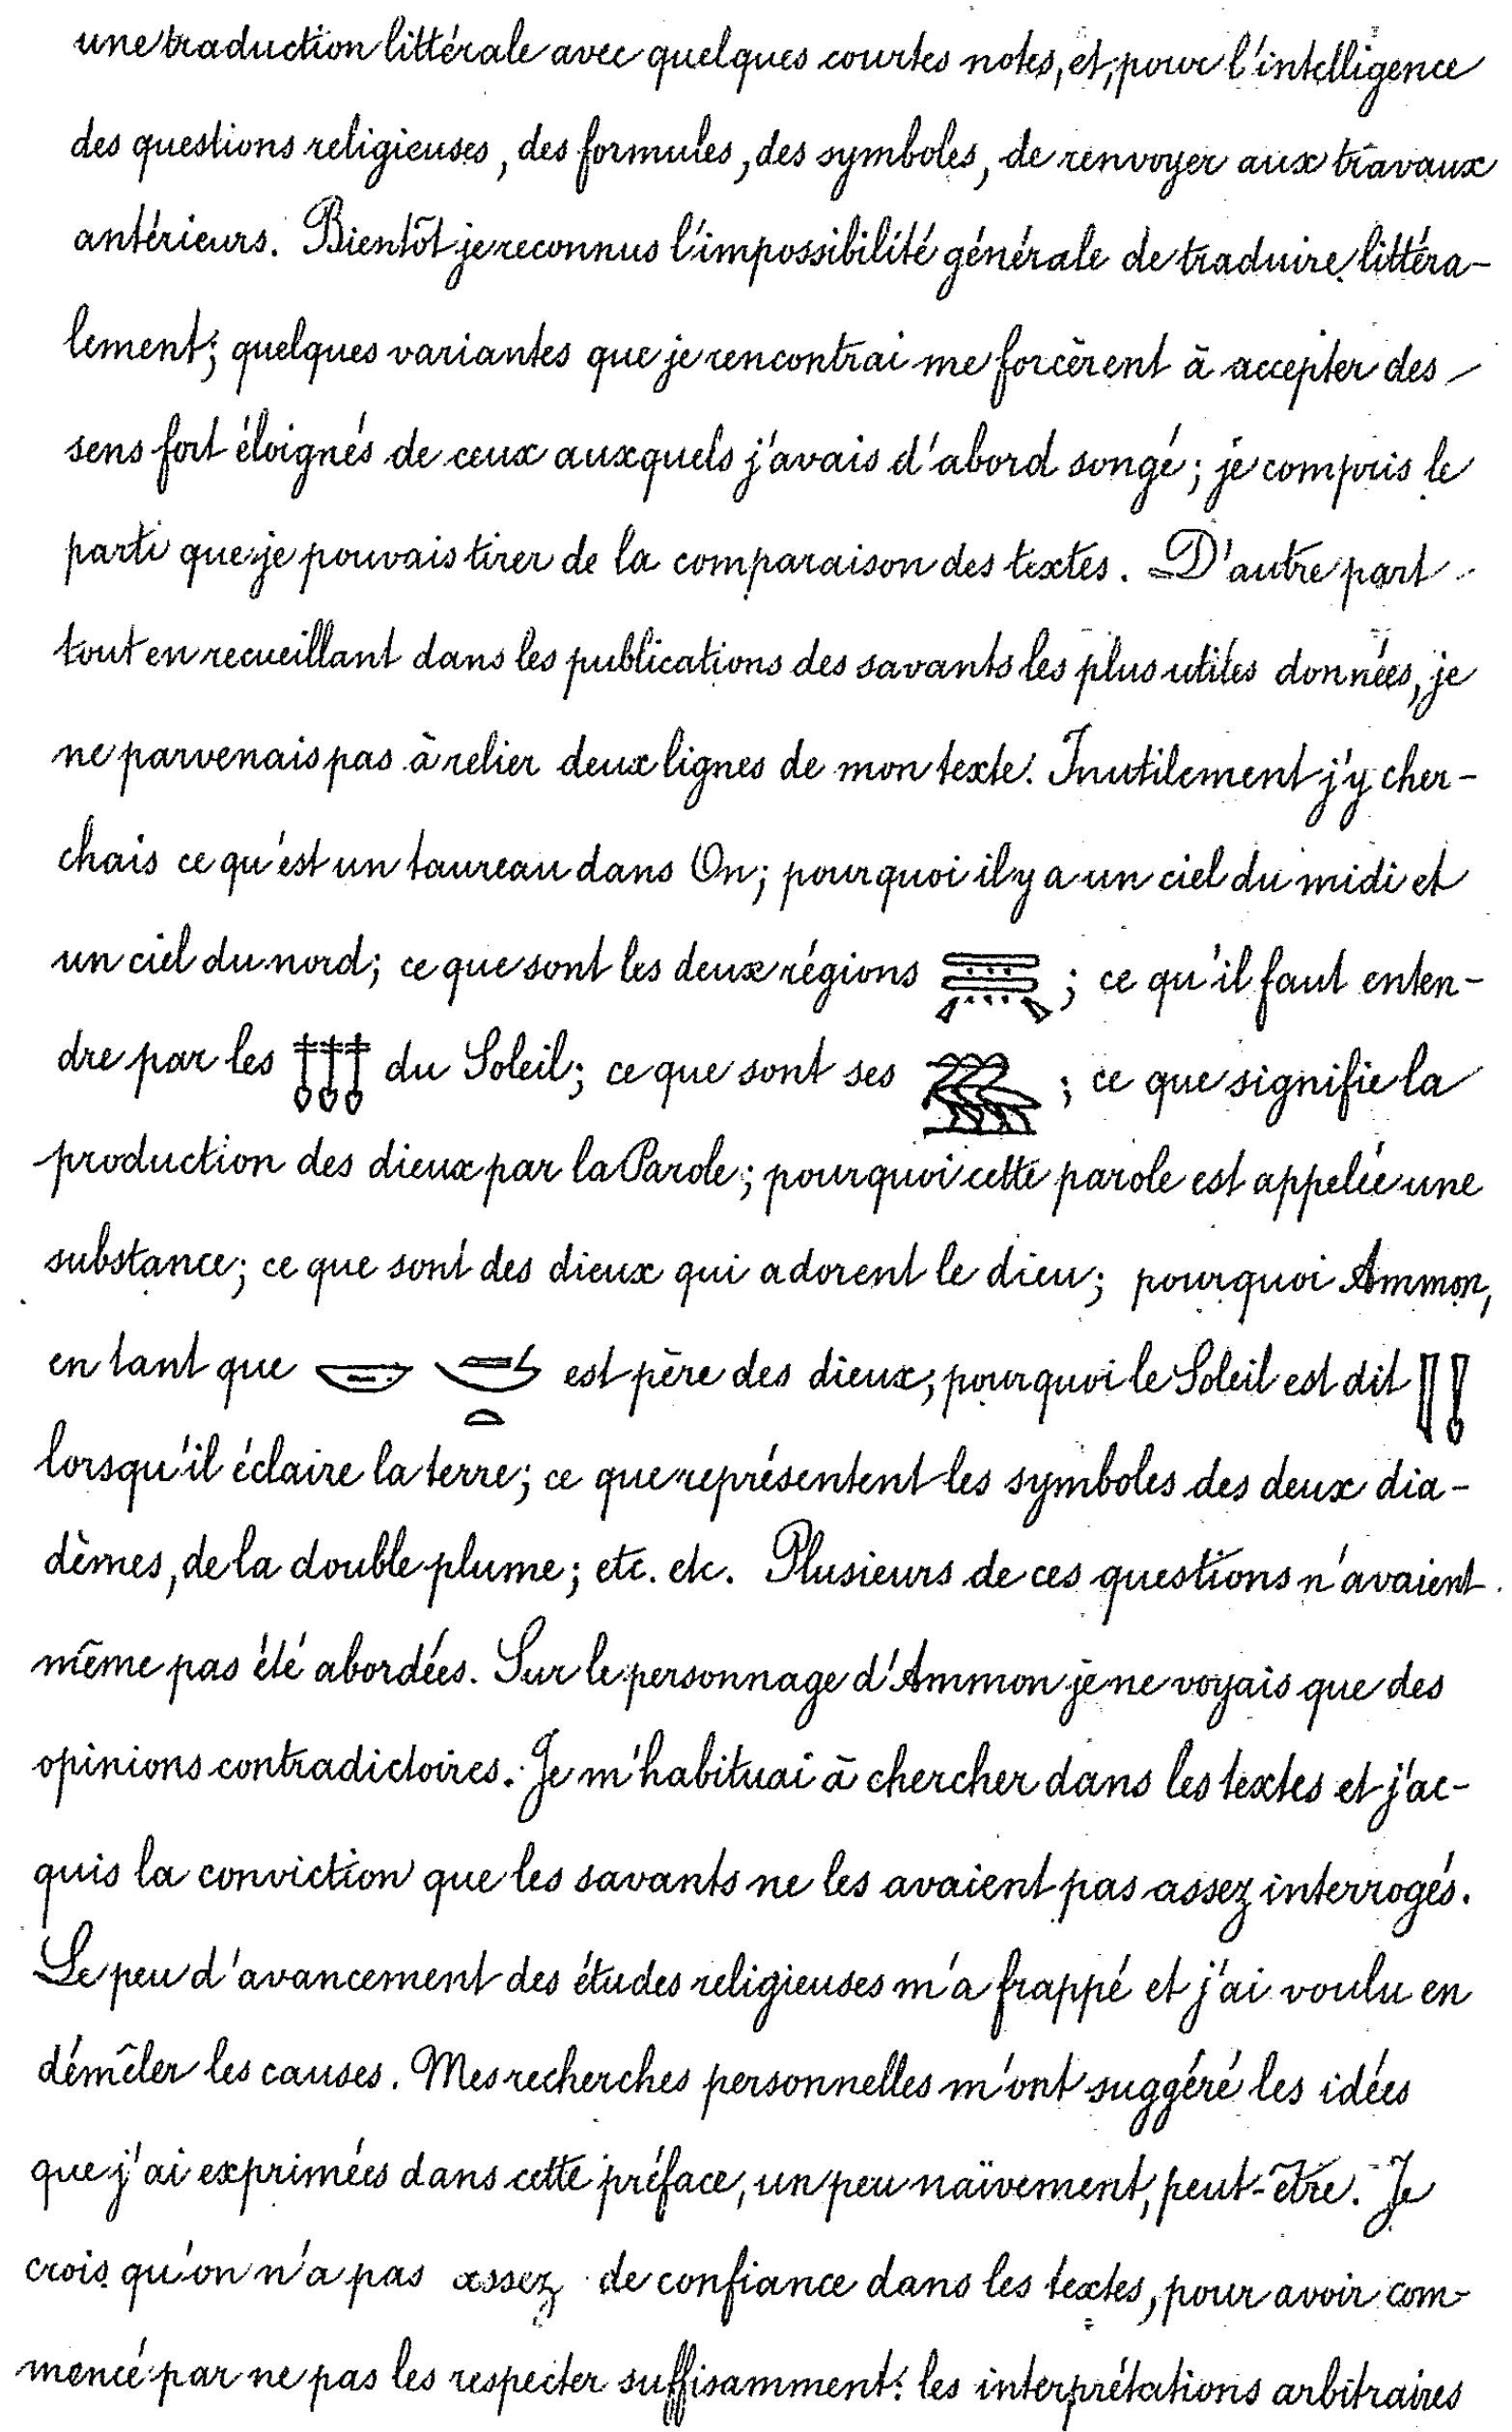 une traduction littérale avec quelques courtes notes, et, pour l'intelligence
des questions religieuses, des formules, des symboles, de renvoyer aux travaux
antérieurs. Bientôt je reconnus l'impossibilité générale de traduire littéra-
lement; quelques variantes que je rencontrai me forcèrent à accepter des
sens fort éloignés de ceux auxquels j'avais d'abord songé; je compris le
parti que je pouvais tirer de la comparaison des textes. D'autre part
tout en recueillant dans les publications des savants les plus utiles données, je
ne parvenais pas à relier deux lignes de mon texte. Inutilement j'y cher-
chais ce qu'est un taureau dans On; pourquoi il y a un ciel du midi et
un ciel du nord; ce que sont les deux régions ; ce qu'il faut enten-
dre par les 𓄤𓄤𓄤 du Soleil; ce que sont ses 𓅢 ; ce que signifie la
production des dieux par la Parole; pourquoi cette parole est appelée une
substance; ce que sont des dieux qui adorent le dieu; pourquoi Ammon,
en tant que est père des dieux; pourquoi le Soleil est dit
lorsqu'il éclaire la terre; ce que représentent les symboles des deux dia-
dèmes, de la double plume; etc. etc. Plusieurs de ces questions n'avaient
même pas été abordées. Sur le personnage d'Ammon je ne voyais que des
opinions contradictoires. Je m'habituai à chercher dans les textes et j'ac-
quis la conviction que les savants ne les avaient pas assez interrogés.
Le peu d'avancement des études religieuses m'a frappé et j'ai voulu en
démêler les causes. Mes recherches personnelles m'ont suggéré les idées
que j'ai exprimées dans cette préface, un peu naïvement, peut-être. Je
crois qu'on n'a pas assez de confiance dans les textes, pour avoir com-
mencé par ne pas les respecter suffisamment: les interprétations arbitraires